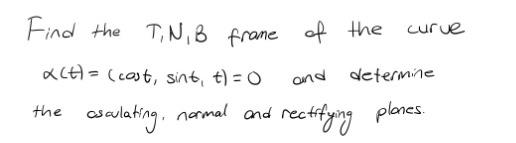 Find the T,N,B frame of the curve
α(t) = (cost, sint, t) = 0 and determine
the osculating, normal and rectifying planes.